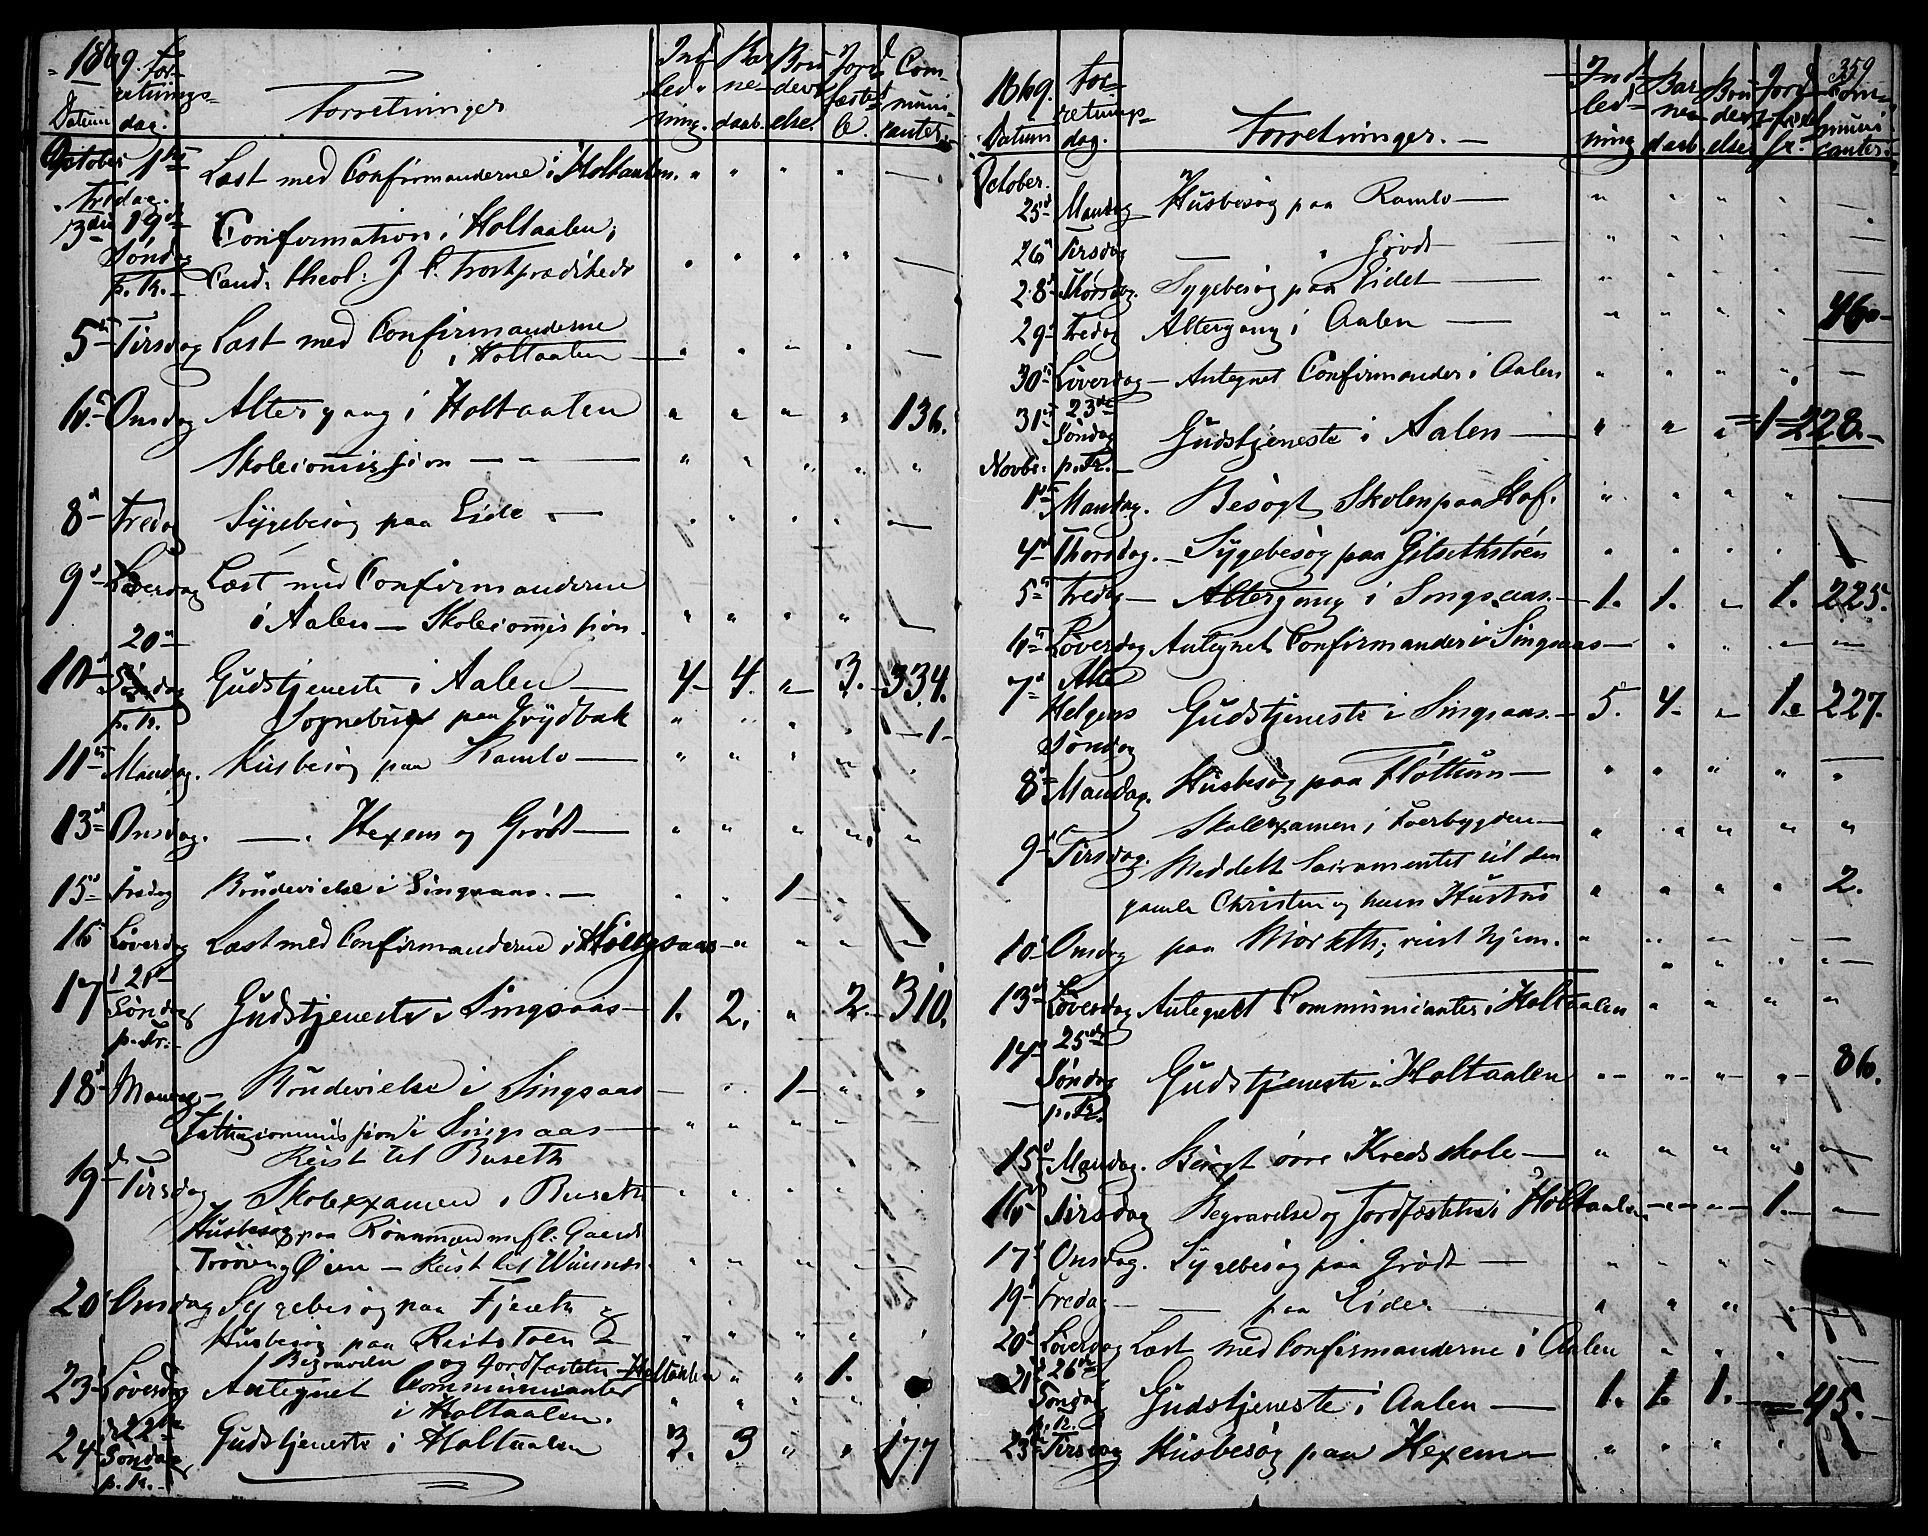 1869
For-
retnings-
Datum
dag.
Forretninger
Ind-
led-
ning.
Bar
ne-
daab.
Bru
devi
else.
Jord
fæstel
se.
Com-
muni-
canter.
October 1ste
Fredag.
Læst med Confirmanderne i Holtaalen.
3die 19de
Sønd
p. Tr.
Confirmation i Holtaalen;
Cand. theol: J. C. prædikede
5te Tirsdag Læst med Confirmanderne
i Holtaalen
6te Onsdag Altergang i Holtaalen 136.
Skolecommission
8de Fredag Sygebesøg paa Eide
9de Løverdag Læst med Confirmanderne
i Aalen — Skolecommission.
20de
10de Søndag Gudstjeneste i Aalen 4 4. 3. 334.
p. Tr. Sognebud paa Grydbak 1
11te Mandag. Husbesøg paa Ramlo
13de Onsdag. — Hexem og Grøt
15de Fredag Brudevielse i Singsaas. 1
16 Løverdag Læst med Confirmanderne i Singsaas
17 21de
Søndag Gudstjeneste i Singsaas 1. 2. 2. 310.
p. Tr.
18de Mandag Brudevielse i Singsaas 1
Fattigcommission i Singsaas
Reist til Buseth
19de Tirsdag
Skolexamen i Buseth
Husbesøg paa
Øien — Reist til
20de Onsdag Sygebesøg paa
Husbesøg paa
Begravelse og Jordfæstelse Holtaalen 1.
23de Løverdag Antegnet Communicanter
i Holtaalen.
24de 22de
Søndag Gudstjeneste i Holtaalen 3. 3 177
p. Tr.
359
1869.
For-
retnings-
Datum
dag.
Forretninger.
Ind-
led-
ning
Bar
ne-
daab
Bru
devi
else
Jord
fæstel
se.
Com-
muni-
canter
October.
25de Mandag Husbesøg paa Ramlo
26de Tirsdag — Grøt
28de Thorsdag. Sygebesøg paa Eidet
29de Fredag Altergang i Aalen 46
30te Løverdag — Antegnet Confirmander i Aalen
31te 23de
Søndag Gudstjeneste i Aalen 1 228.
Novbr. p. Tr.
1ste Mandag. Besøgt Skolen paa Hof.
4de Thorsdag. Sygebesøg paa Gilsethstøen
5te Fredag Altergang i Singsaas. 1. 1. 1. 225.
6te Løverdag Antegnet Confirmander i Singsaas
7de Alle
Helgens
Søndag Gudstjeneste i Singsaas. 5. 4. 1. 227.
8de Mandag. Husbesøg paa Fløttum
Skolexamen i
9de Tirsdag. Meddelt Sacramentet til den
gamle Christen og hans Hustru 2.
10de Onsdag paa reist hjem.
13de Løverdag Antegnet Communicanter i Holtaalen
14de 25de
Søndag Gudstjeneste i Holtaalen 86.
p. Tr.
15de Mandag. Besøgt øvre Kredsskole
16de Tirsdag Begravelse og Jordfæstelse i Holtaalen 1.
17de Onsdag. Sygebesøg paa Grøt
19de Fredag — paa Eidet
20de Løverdag Læst med Confirmanderne i Aalen
21de 26de
Søndag Gudstjeneste i Aalen 1. 1. 1. 45.
p. Tr.
23de Tirsdag Husbesøg paa Hexem